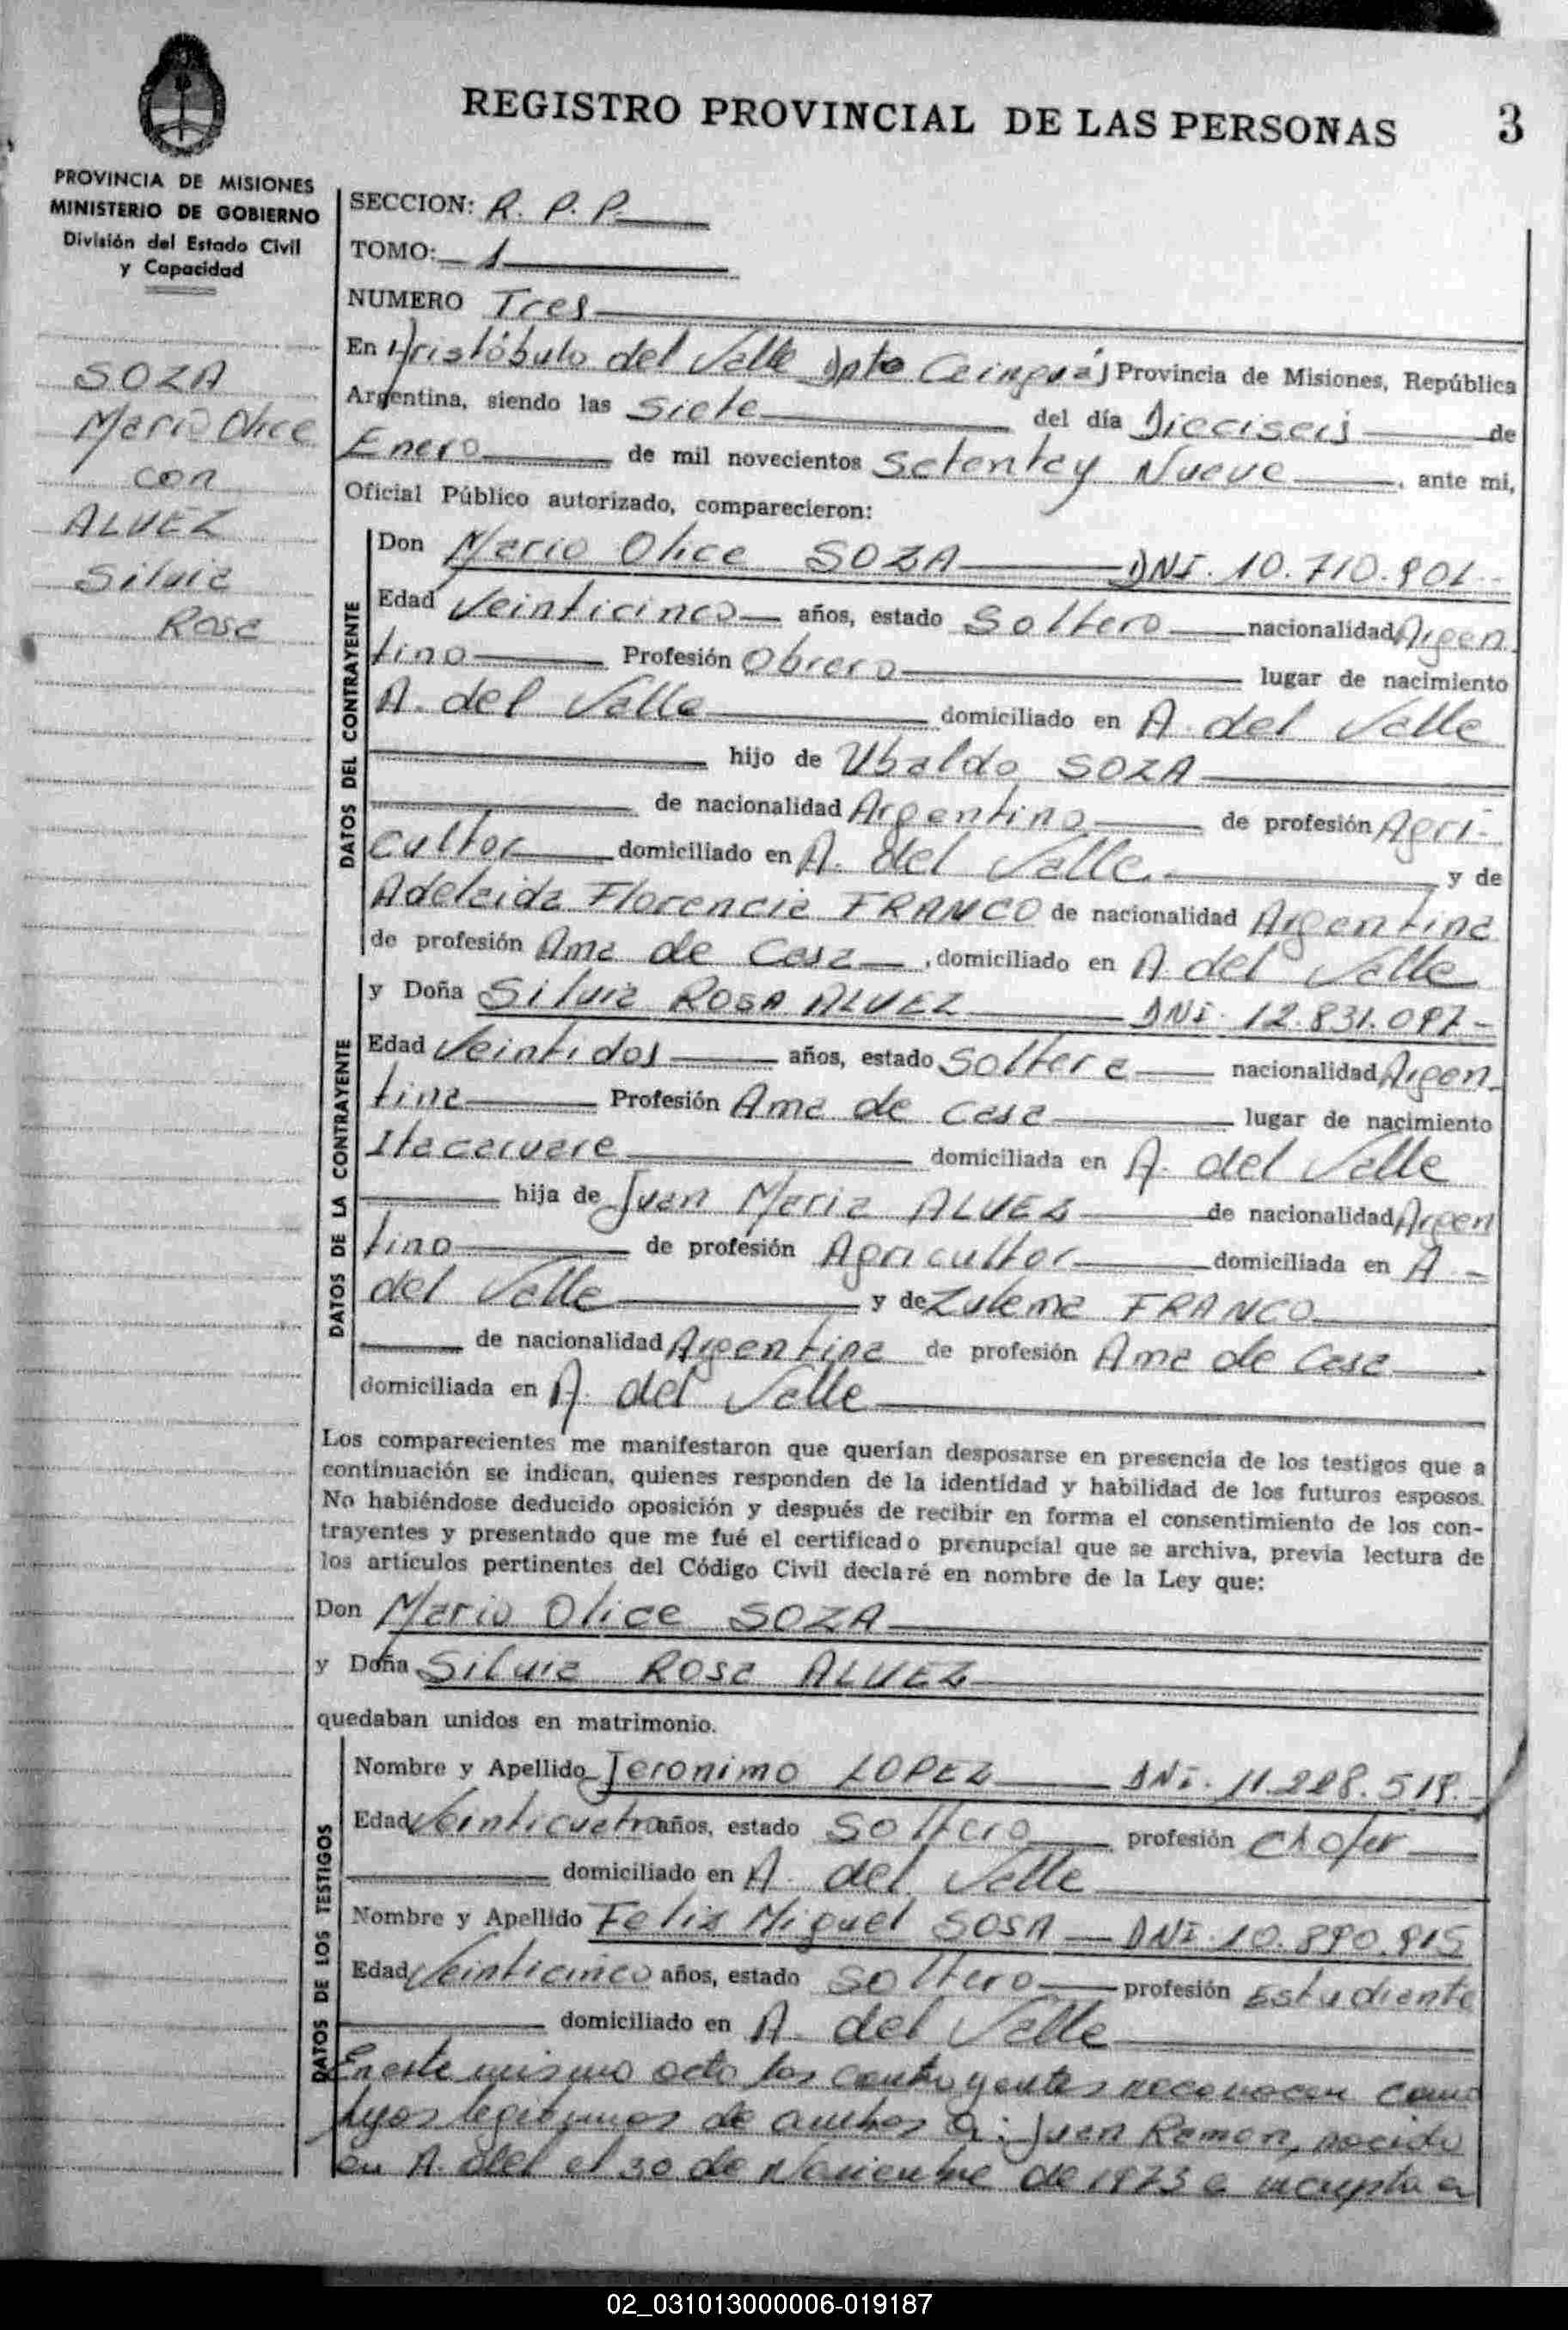 REGISTRO PROVINCIAL DE LAS PERSONAS 3
PROVINCIA DE MISIONES
MINISTERIO DE GOBIERNO
División del Estado Civil
y Capacidad
SOZA
Mario Olice
con
ALVEZ
Silvia
Rosa
SECCION: R. P. P.
TOMO: 1
NUMERO Tres
En Aristóbulo del Valle Dpto Cainguás Provincia de Misiones, República
Argentina, siendo las Siete del día Dieciseis de
Enero de mil novecientos Setenta y Nueve, ante mi,
Oficial Público autorizado, comparecieron:
DATOS DEL CONTRAYENTE
Don Mario Olice SOZA DNI. 10.710.901
Edad Veinticinco años, estado Soltero nacionalidad Argen
tino Profesión Obrero lugar de nacimiento
A. del Valle domiciliado en A. del Valle
hijo de Ubaldo SOZA
de nacionalidad Argentino de profesión Agri-
cultor domiciliado en A. del Valle y de
Adelaida Florencia FRANCO de nacionalidad Argentina
de profesión Ama de Casa, domiciliado en A. del Valle
DATOS DE LA CONTRAYENTE
y Doña Silvia ROSA ALVEZ DNI. 12.831.097-
Edad Veintidos años, estado Soltera nacionalidad Argen-
tina Profesión Ama de Casa lugar de nacimiento
Itacaruare domiciliada en A. del Valle
hija de Juan Maria ALVEZ de nacionalidad Argen
tino de profesión Agricultor domiciliada en A-
del Valle y de Zulema FRANCO
de nacionalidad Argentina de profesión Ama de Casa
domiciliada en A. del Valle
Los comparecientes me manifestaron que querían desposarse en presencia de los testigos que a
continuación se indican, quienes responden de la identidad y habilidad de los futuros esposos.
No habiéndose deducido oposición y después de recibir en forma el consentimiento de los con-
trayentes y presentado que me fué el certificado prenupcial que se archiva, previa lectura de
los artículos pertinentes del Código Civil declaré en nombre de la Ley que:
Don Mario Olice SOZA
y Doña Silvia Rosa ALVEZ
quedaban unidos en matrimonio.
DATOS DE LOS TESTIGOS
Nombre y Apellido Jeronimo LOPEZ DNI. 11.228.519.-
Edad Veinticuatro años, estado Soltero profesión Chofer
domiciliado en A. del Valle
Nombre y Apellido Felix Miguel SOSA DNI. 10.890.915
Edad Veinticinco años, estado Soltero profesión Estudiante
domiciliado en A. del Valle
En este mismo acto los contrayentes reconocen como
hijos legitimos de ambos a: Juan Ramon, nacido
en A. del el 30 de Noviembre de 1973 e inscripto en
02_031013000006-019187